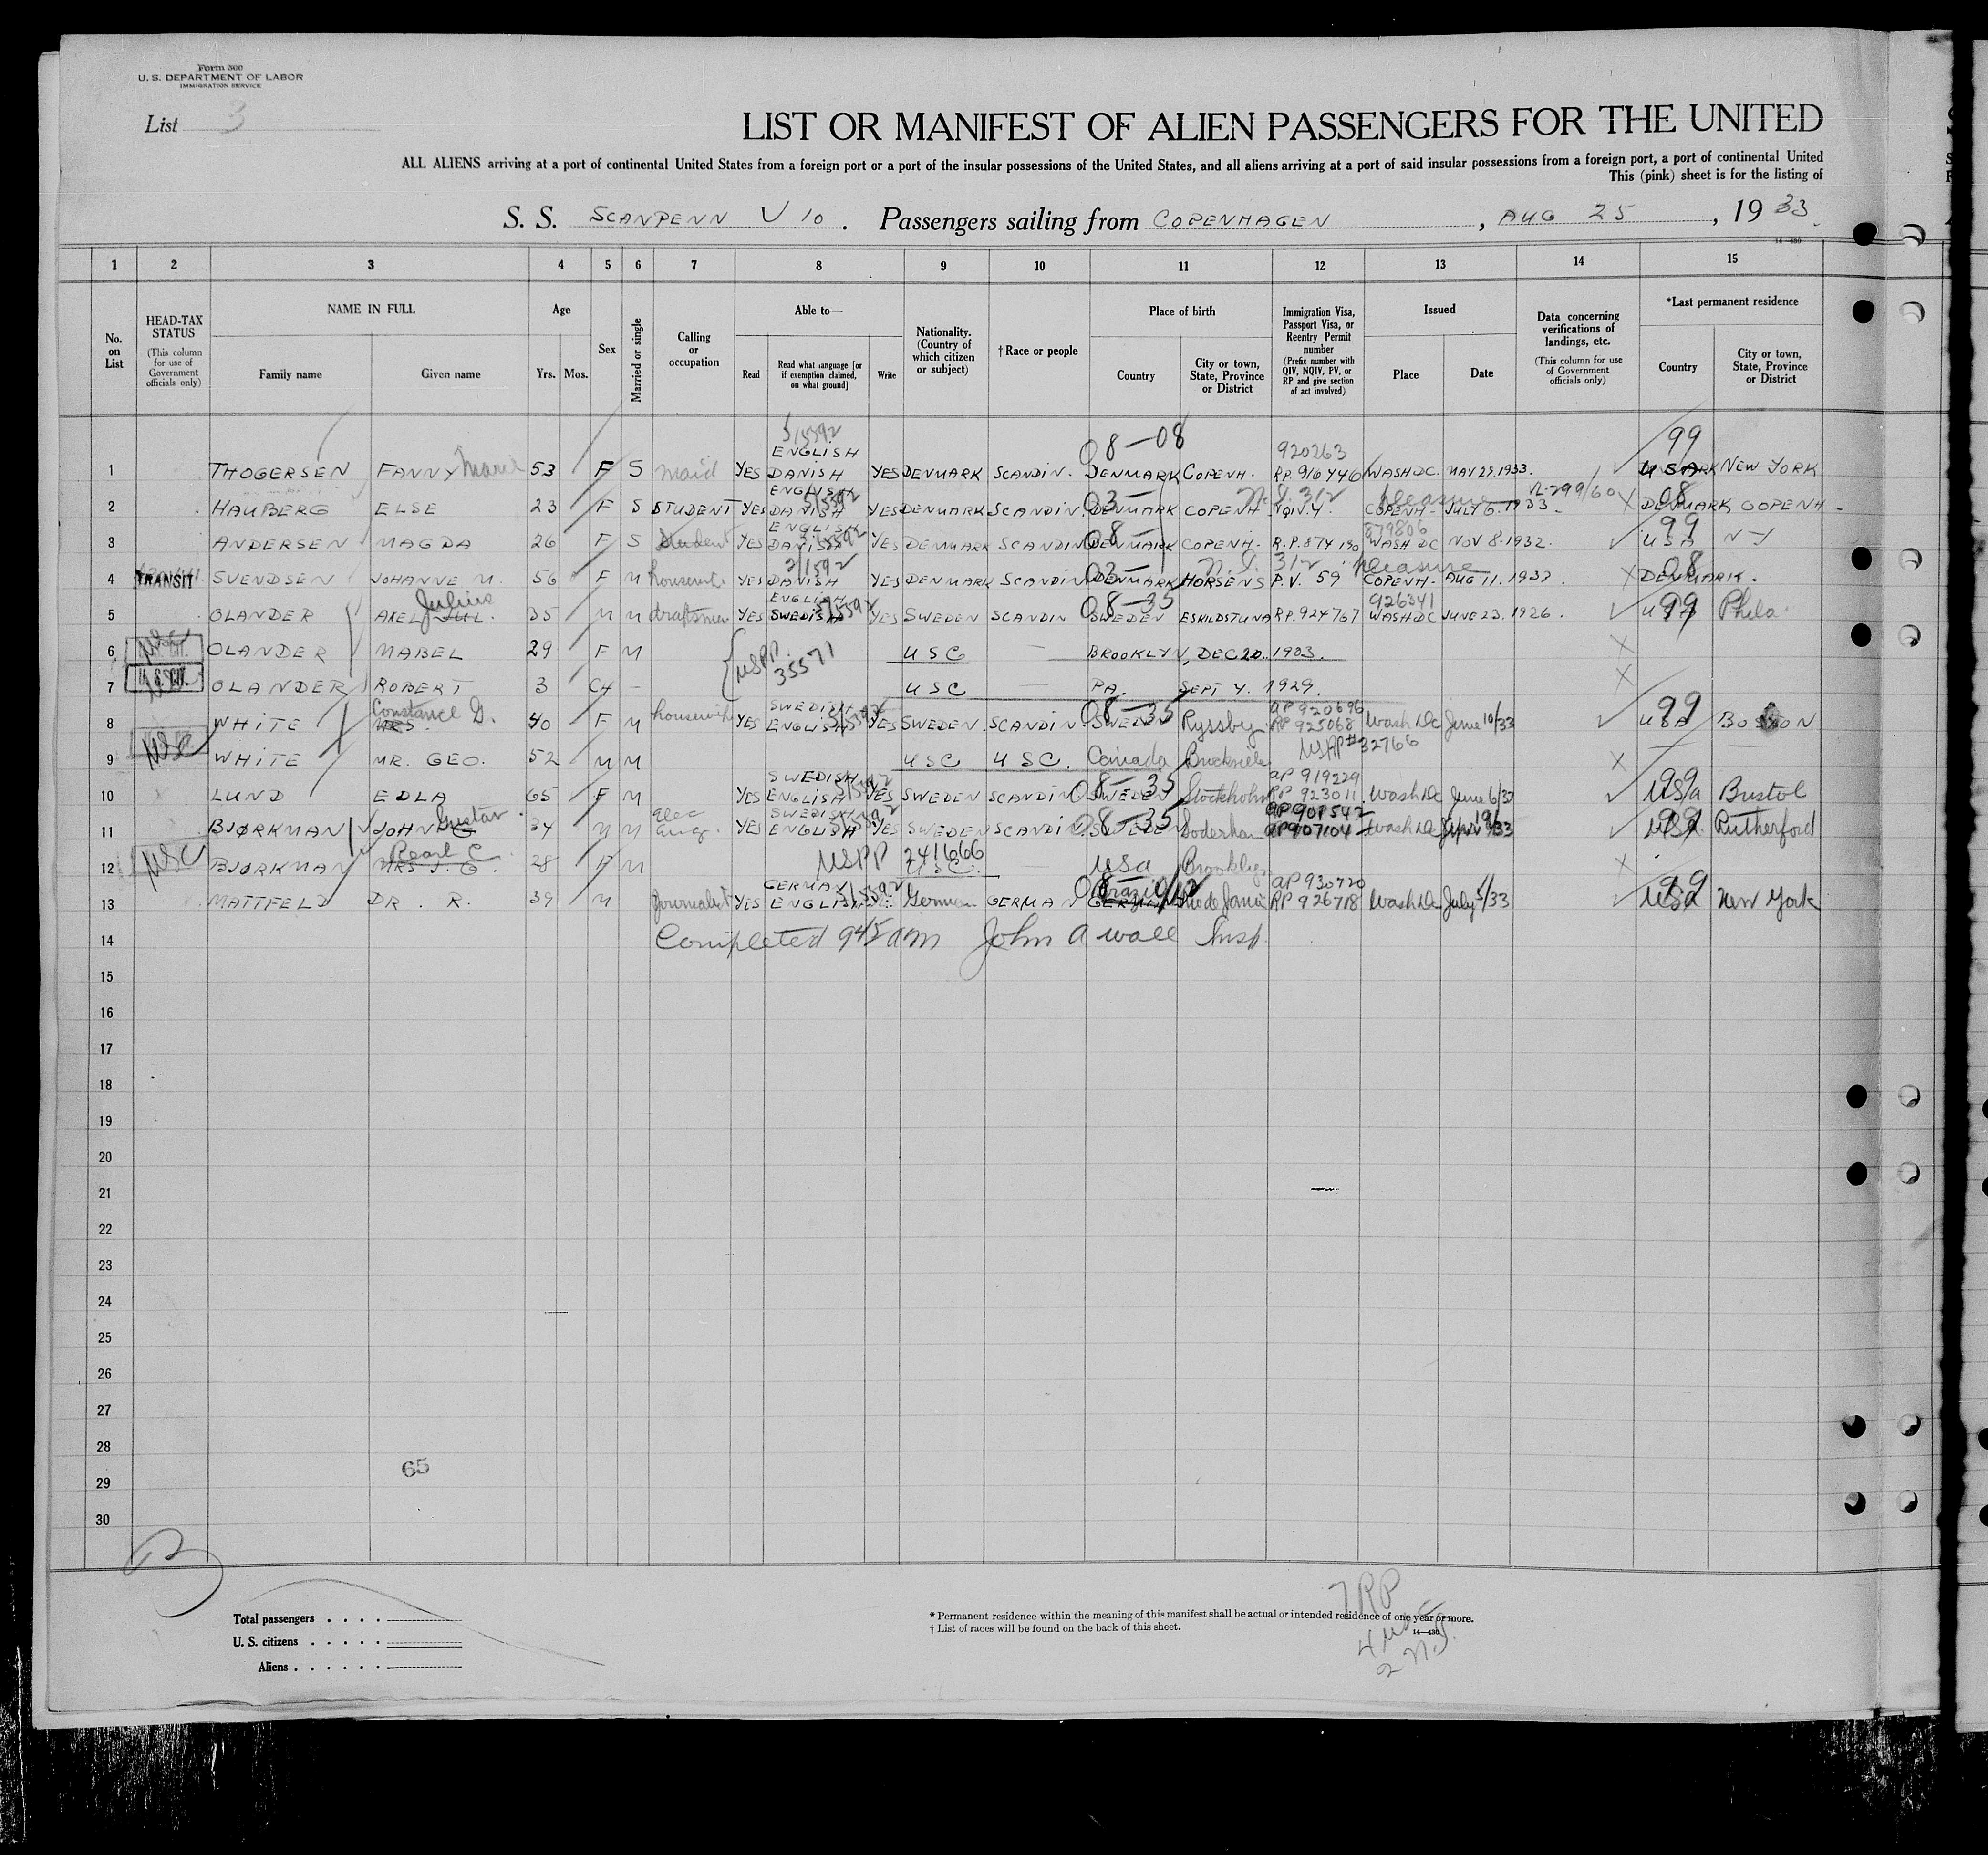 Form 500
U. S. DEPARTMENT OF LABOR
IMMIGRATION SERVICE
List 3
LIST OR MANIFEST OF ALIEN PASSENGERS FOR THE UNITED
ALL ALIENS arriving at a port of continental United States from a foreign port or a port of the insular possessions of the United States, and all aliens arriving at a port of said insular possessions from a foreign port, a port of continental United
This (pink) sheet is for the listing of
S. S. SCANPENN V 10. Passengers sailing from COPENHAGEN, AUG 25, 19 33
14—430
1 2 3 4 5 6 7 8 9 10 11 12 13 14 15
No. on List
HEAD-TAX STATUS (This column for use of Government officials only)
NAME IN FULL
Family name
Given name
Age
Yrs. Mos.
Sex
Married or single
Calling or occupation
Able to—
Read
Read what language [or if exemption claimed, on what ground]
Write
Nationality. (Country of which citizen or subject)
† Race or people
Place of birth
Country
City or town, State, Province or District
Immigration Visa, Passport Visa, or Reentry Permit number (Prefix number with QIV, NQIV, PV, or RP and give section of act involved)
Issued
Place
Date
Data concerning verifications of landings, etc. (This column for use of Government officials only)
*Last permanent residence
Country
City or town, State, Province or District
08—08 920263 99
1 THOGERSEN FANNY Marie 53 F S maid YES ENGLISH DANISH YES DENMARK SCANDIN. DENMARK COPENH. RP. 916446 WASH DC. MAY 29.1933. USA NEW YORK
2 HAUBERG ELSE 23 F S STUDENT YES ENGLISH DANISH YES DENMARK SCANDIN. DENMARK COPENH. COPENH. JULY 6.1933. pleasure 08 DENMARK COPENH.
3 ANDERSEN MAGDA 26 F S Student YES ENGLISH DANISH YES DENMARK SCANDIN DENMARK COPENH. R.P. 874190 879806 WASH DC NOV 8.1932. 99 USA N-Y
4 TRANSIT SVENDSEN JOHANNE M. 56 F M YES DANISH YES DENMARK SCANDIN DENMARK HORSENS P.V. 59 pleasure COPENH. AUG 11.1933. 08 DENMARK.
5 OLANDER AXEL JUL. Julius 35 M M draftsman YES ENGLISH SWEDISH YES SWEDEN SCANDIN 08—35 SWEDEN ESKILDSTUNA RP. 924767 926341 WASH DC JUNE 23.1926. 99 USA Phila.
6 OLANDER MABEL 29 F M USPP 35571 USC — BROOKLYN, DEC 20. 1903.
7 U.S. CIT. OLANDER ROBERT 3 CH — USC PA. SEPT 4. 1929.
8 WHITE MRS. Constance D. 40 F M housewife YES SWEDISH ENGLISH YES SWEDEN SCANDIN 08—35 SWEDEN Ryssby AP 920696 RP 925068 Wash DC June 10/33 99 USA BOSTON
9 USC WHITE MR. GEO. 52 M M USC USC. Canada Brockville USPP# 32766
10 LUND EDLA 65 F M YES SWEDISH ENGLISH YES SWEDEN SCANDIN 08—35 SWEDEN Stockholm AP 919229 RP 923011 Wash DC June 6/33 99 USA Bristol
11 BJØRKMAN JOHN G Gustav 34 M M elec Eng. YES SWEDISH ENGLISH YES SWEDEN SCANDIN 08—35 SWEDEN Soderham AP 901542 RP 907104 Wash DC 19/33 99 USA Rutherford
12 USC BJØRKMAN MRS J. G. Pearl C. 28 F M USPP 241666 USC. — USA Brooklyn
13 MATTFELD DR. R. 39 M Journalist YES GERMAN ENGLISH YES German GERMAN Brazil GERMANY Rio de Janeiro AP 930720 RP 926718 Wash DC July 5/33 99 USA New York
14 Completed 945 am John A Wall Insp.
15
16
17
18
19
20
21
22
23
24
25
26
27
28
65
29
30
Total passengers . . . .
U. S. citizens . . . . .
Aliens . . . . . .
* Permanent residence within the meaning of this manifest shall be actual or intended residence of one year or more.
† List of races will be found on the back of this sheet.
14—430
7 RP
4 USC
2 N.I.